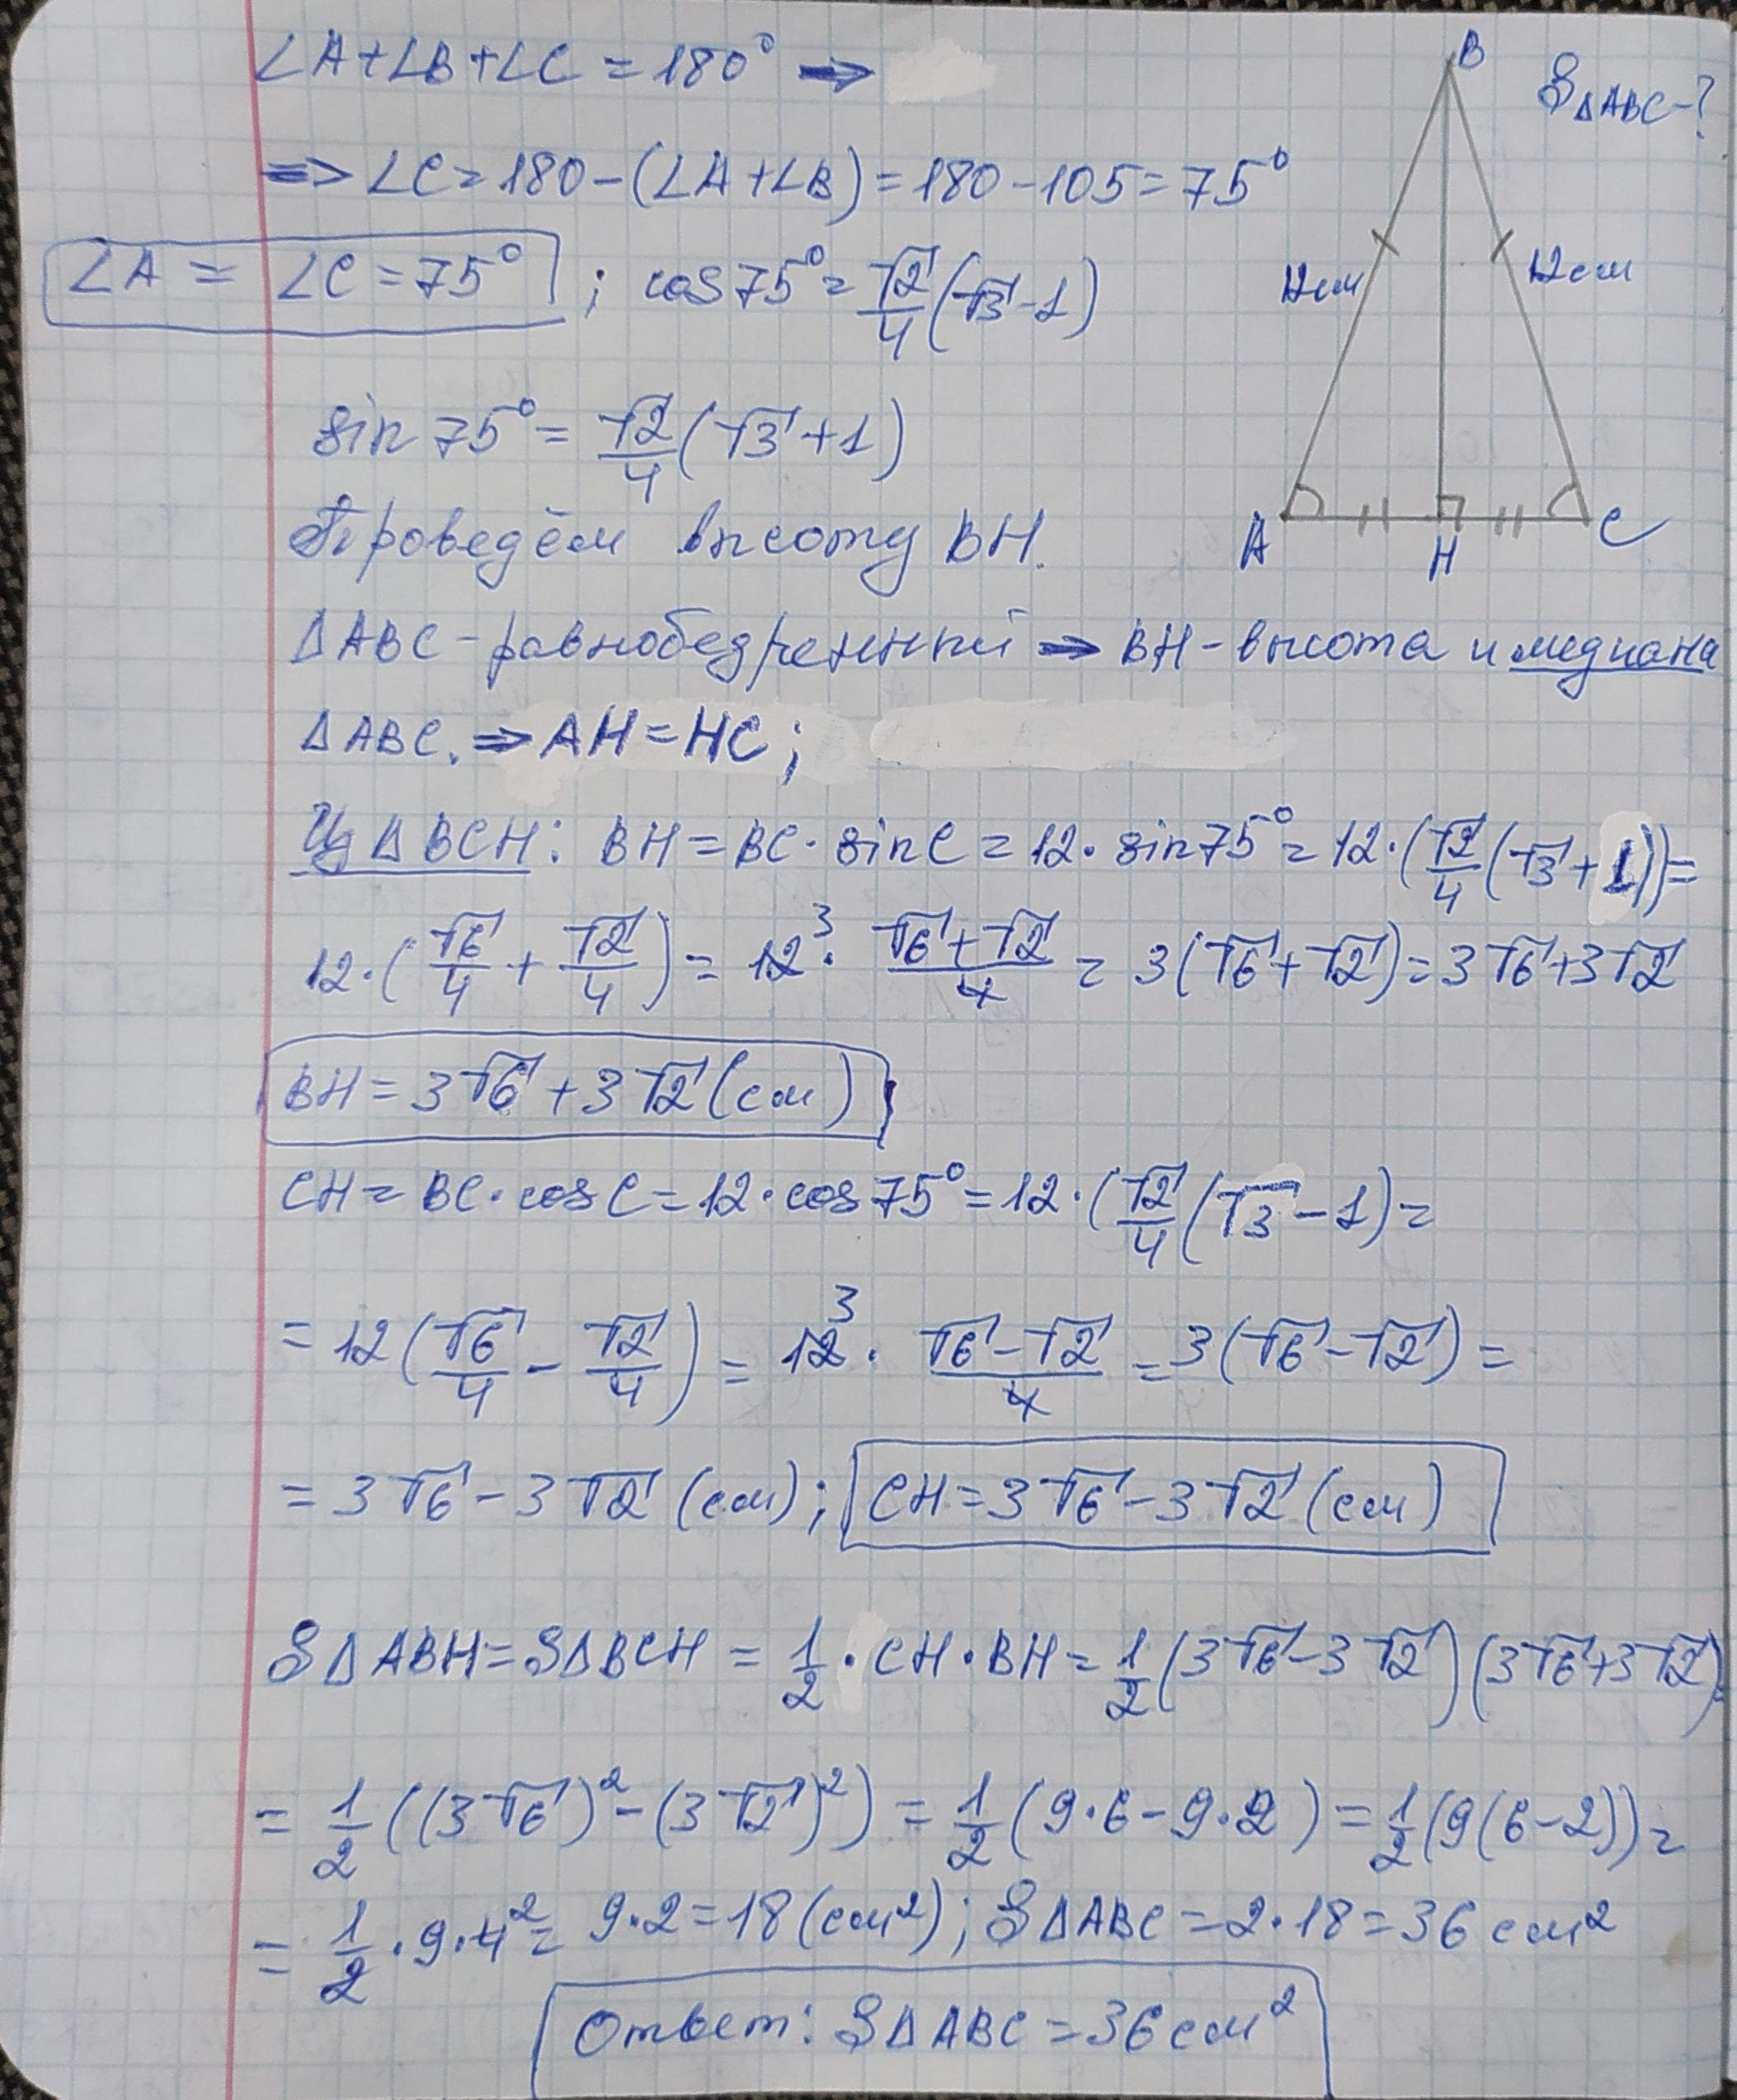 ∠A+∠B+∠C=180° ⇒
⇒ ∠C=180-(∠A+∠B)=180-105=75°
∠A = ∠C=75° ; cos75°=√2/4(√3-1)
sin75°=√2/4(√3+1)
Проведём высоту BH.
ΔABC-равнобедренный ⇒ BH-высота и медиана
ΔABC. ⇒ AH=HC;
Из ΔBCH: BH=BC·sinC=12·sin75°=12·(√2/4(√3+1))=
12·(√6/4+√2/4)=12³·(√6+√2)/4=3(√6+√2)=3√6+3√2
BH=3√6+3√2(см)
CH=BC·cosC=12·cos75°=12·(√2/4(√3-1)=
=12(√6/4-√2/4)=12³·(√6-√2)/4=3(√6-√2)=
=3√6-3√2(см); CH=3√6-3√2(см)
SΔABH=SΔBCH=1/2·CH·BH=1/2(3√6-3√2)(3√6+3√2)=
=1/2((3√6)²-(3√2)²)=1/2(9·6-9·2)=1/2(9(6-2))=
=1/2·9·4²=9·2=18(см²); SΔABC=2·18=36см²
Ответ: SΔABC=36см²
B
SΔABC-?
12см
12см
A
H
C